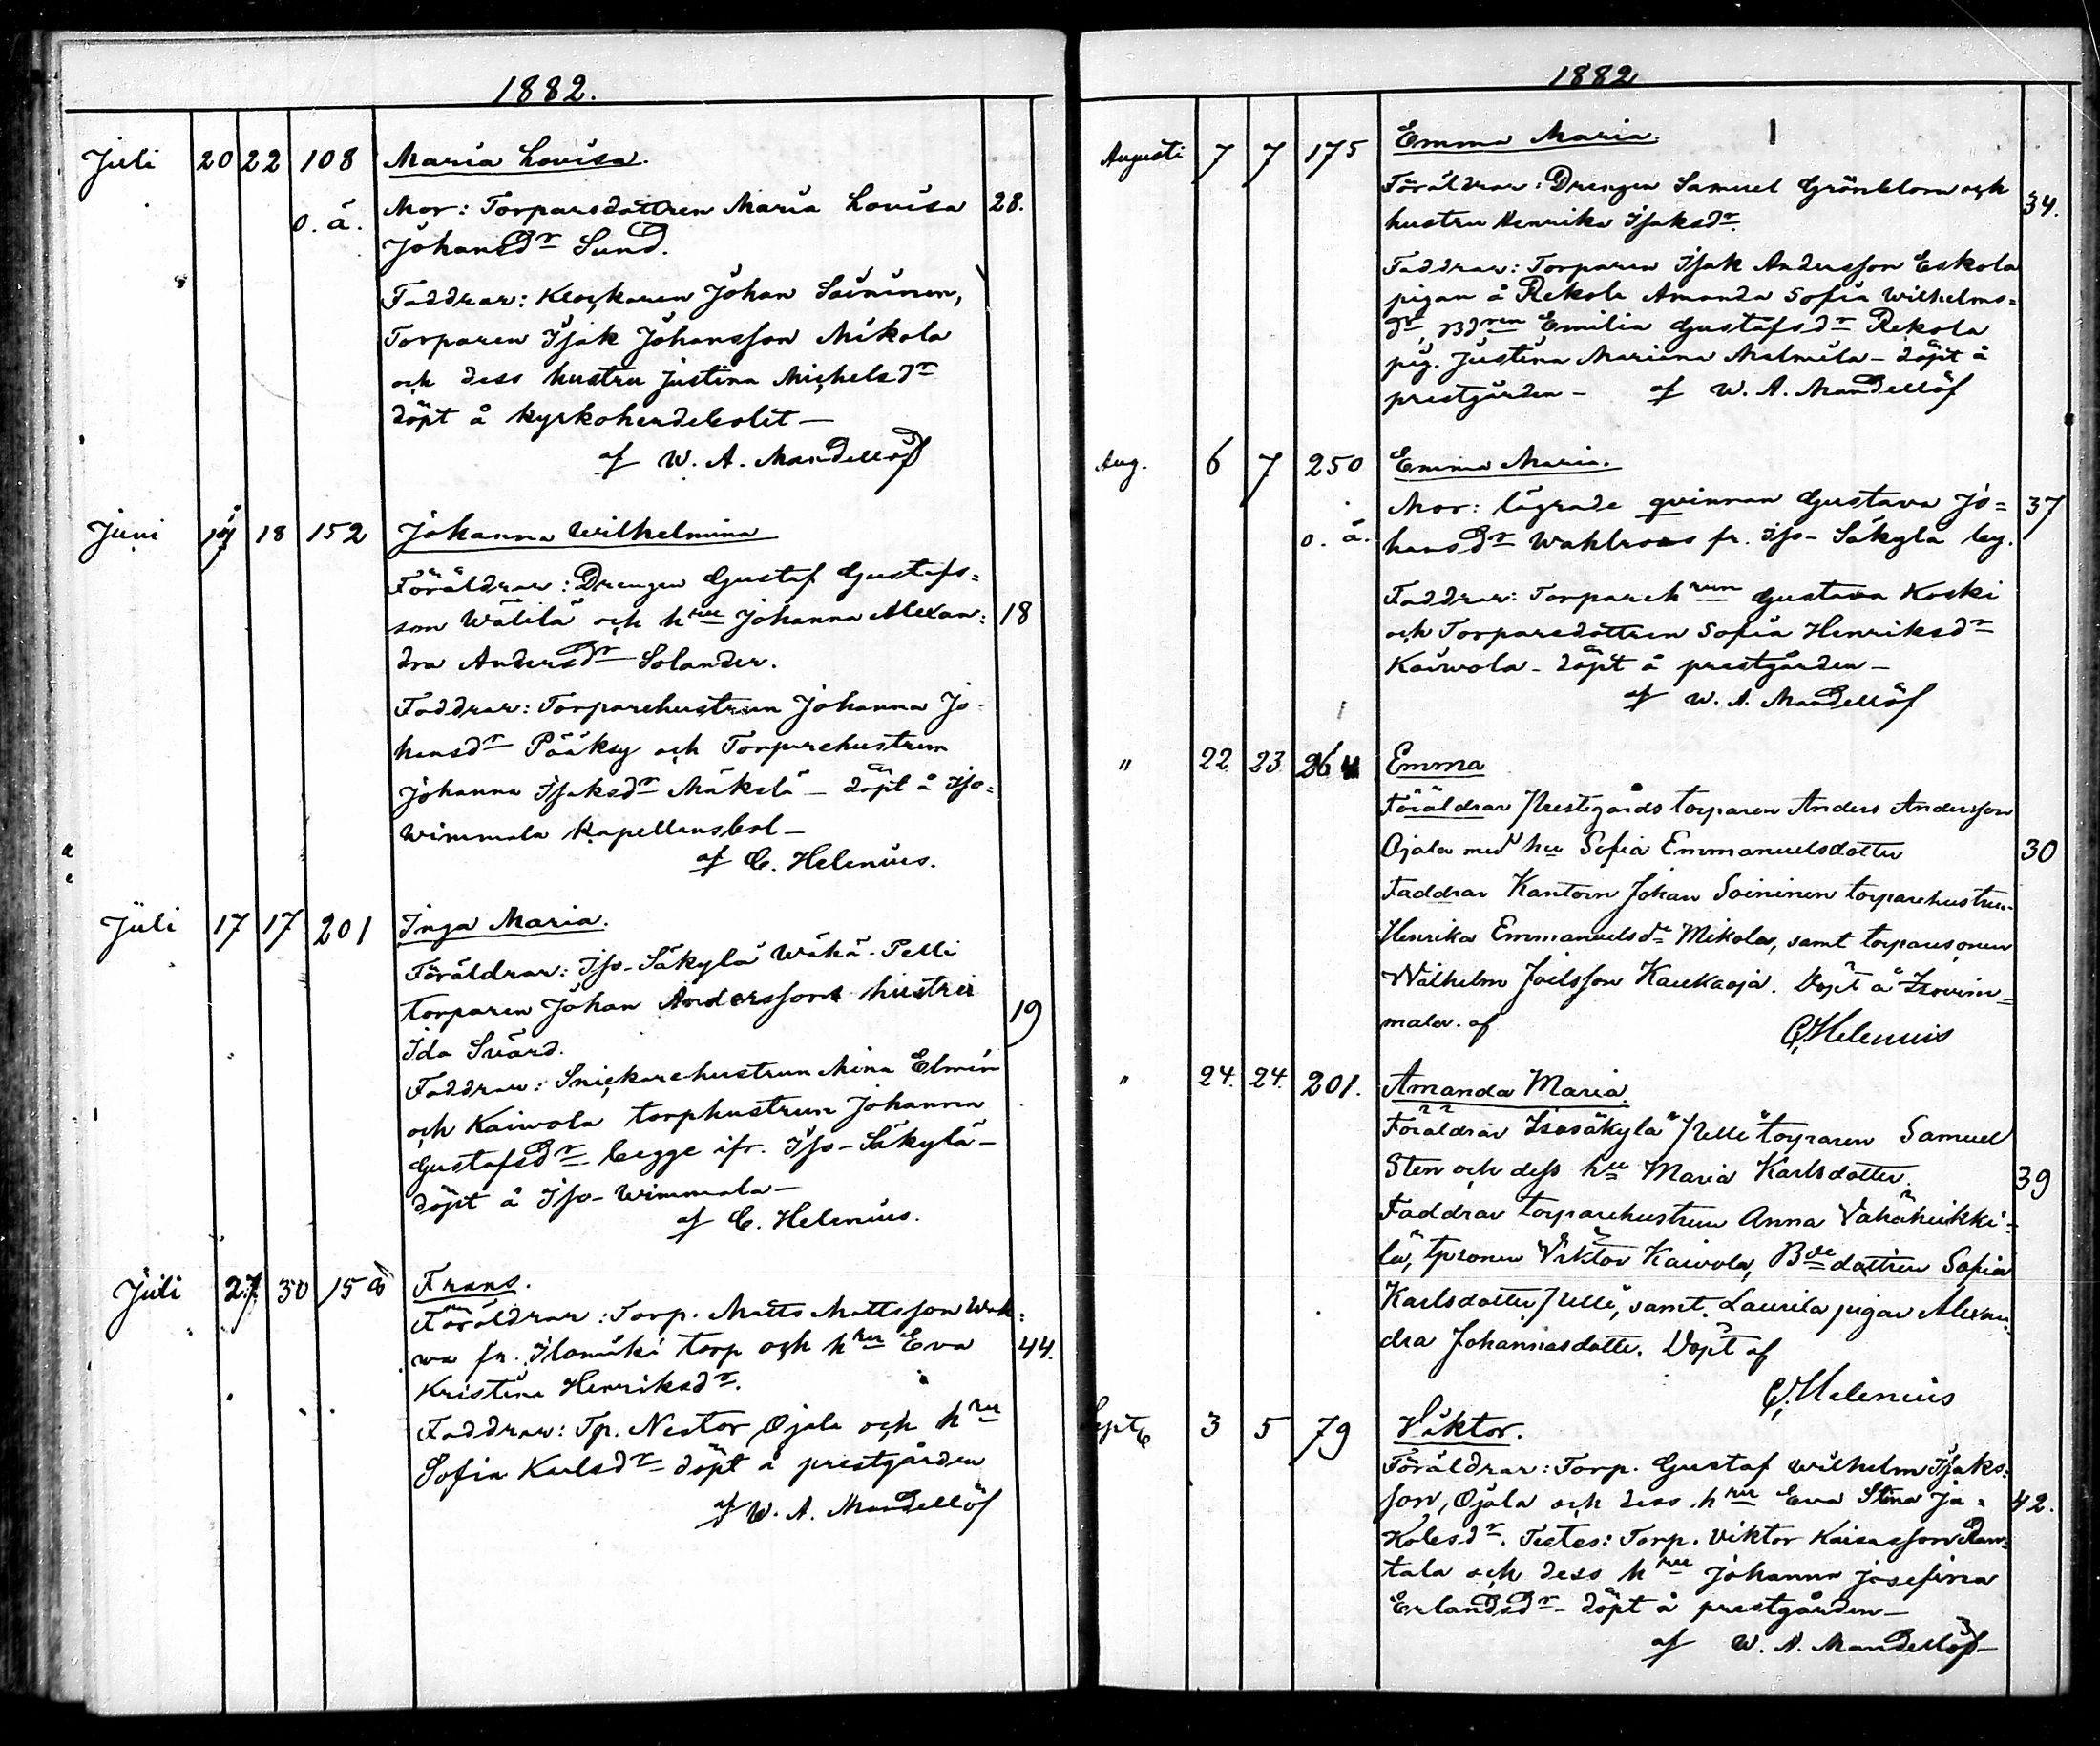 1882.
Juli 20 22 108 Maria Lovisa.
o. ä. Mor: Torparsdottren Maria Lovisa 28.
Johansdr Sund.
Faddrar: Klockaren Johan Soininen,
Torparen Isak Johansson Mikola
och dess hustru Justina Michelsdr
döpt å kyrkoherdebolet —
af W. A. Mandellöf
Juni 18 152 Johanna Wilhelmina
Föräldrar: Drengen Gustaf Gustafs=
son Wälilä och hru Johanna Alexan= 18
dra Andersdr Solander.
Faddrar: Torparehustrun Johanna Jo-
hansdr Pääksy och Torparehustrun
Johanna Isaksdr Mäkelä — döpt å Iso=
wimmala Kapellansbol —
af C. Helenius.
Juli 17 17 201 Inga Maria.
Föräldrar: Iso-Säkylä Wähä-Pelli
torparen Johan Andersson hustru
Ida Svärd. 19
Faddrar: Snickarehustrun Mina Elmin
och Kaiwola torphustrun Johanna
Gustafsdr begge ifr. Iso-Säkylä —
döpt å Iso-Wimmala —
af C. Helenius.
Juli 27 30 Frans.
Föräldrar: Torp. Matts Mattsson
wa fr. Ilomäki torp och hru Eva 44.
Kristina Henriksdr.
Faddrar: Tp. Nestor Ojala och hru
Sofia Karlsdr — döpt å prestgården
af W. A. Mandellöf
1882
Augusti 7 7 175 Emma Maria.
Föräldrar: Drengen Samuel Grönblom och 34.
hustru Henrika Isaksdr.
Faddrar: Torparen Isak Andersson Eskola
pigan å Rekola Amanda Sofia Wilhelms=
dr, Bdren Emilia Gustafsdr Rekola
pig. Justina Mariana Malmila — döpt å
prestgården — af W. A. Mandellöf
Aug. 6 7 250 Emma Maria.
Mor: lägrade qvinnan Gustava Jo= 37
o. ä. hansdr Wahlroos fr. Iso-Säkylä by.
Faddrar: Torparehrun Gustava Koski
och Torparedottren Sofia Henriksdr
Kaiwola — döpt å prestgården —
af W. A. Mandellöf
" 22 23 264 Emma
Föräldrar Prestgårds torparen Anders Andersson
Ojala med hu Sofia Emmanuelsdotter 30
Faddrar Kantorn Johan Soininen torparehustrun
Henrika Emmanuelsdr Mikola, samt torparesonen
Wilhelm Joelsson Kaukaoja. Döpt å Isovim=
mala. af C. Helenius
" 24. 24. 201. Amanda Maria.
Föräldrar Isosäkylä Pelli torparen Samuel
Sten och dess hu Maria Karlsdotter. 39
Faddrar torparehustrun Anna Vähäheikki-
lä, tpsonen Viktor Kaivola, Bdedottren Sofia
Karlsdotter Pelli, samt Laurila pigan Alexan-
dra Johannasdotter. Döpt af
C. Helenius
Septe 3 5 79 Viktor.
Föräldrar: Torp. Gustaf Wilhelm Isaks=
son, Ojala och dess hru Eva Stina Ja= 42.
kobsdr. Testes: Torp. Viktor Kaisasson Ran=
tala och dess hru Johanna Josefina
Erlandsdr — döpt å prestgården —
af W. A. Mandellöf